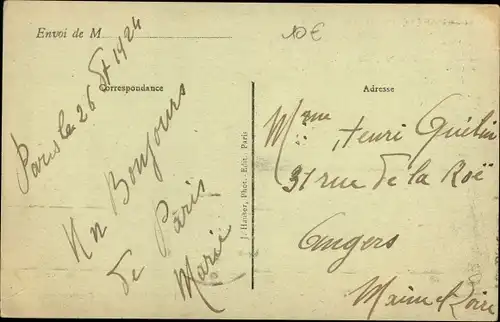 Envoi de M
10 €
Correspondance
Adresse
Paris le 26 8t 1924
Un Bonjours
de Paris
Marie
J. Hauser, Phot.-Edit. Paris
Mme Henri Guélin
31 rue de la Roë
Angers
Maine & Loire